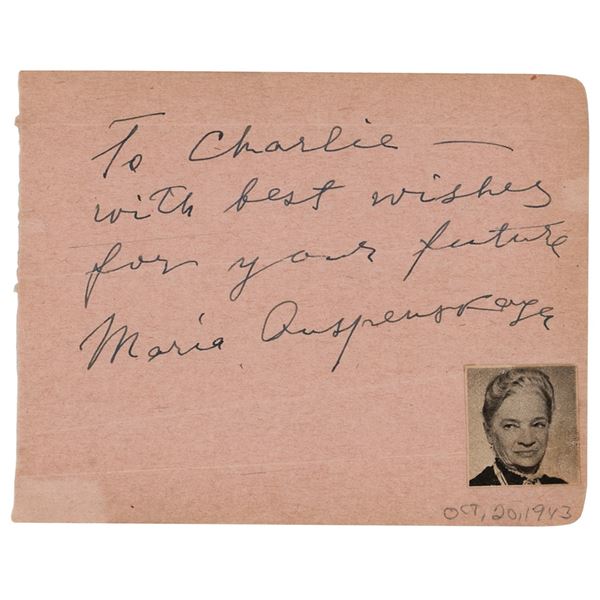 To Charlie —
with best wishes
for your future
Maria Ouspenskaya
Oct, 20, 1943